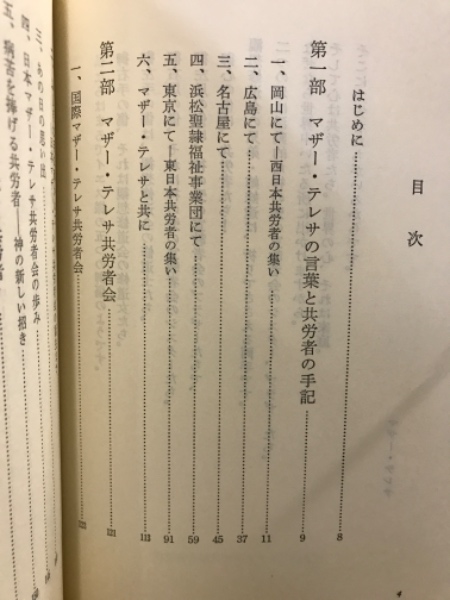 目次
はじめに……8
第一部 マザー・テレサの言葉と共労者の手記……9
一、岡山にて―西日本共労者の集い……11
二、広島にて……37
三、名古屋にて……45
四、浜松聖隷福祉事業団にて……59
五、東京にて―東日本共労者の集い……91
六、マザー・テレサと共に……113
第二部 マザー・テレサ共労者会……121
一、国際マザー・テレサ共労者会……
三、あの日の思い出……
四、日本マザー・テレサ共労者会の歩み……
五、病苦を捧げる共労者――神の新しい招き……
4